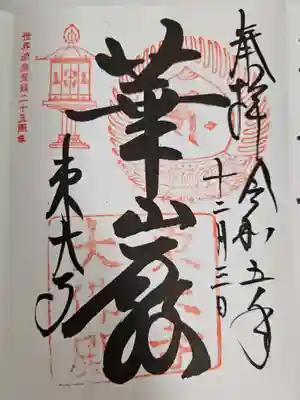 奉拝 令和五年
十二月三日
華厳
東大寺
世界遺産登録二十五周年